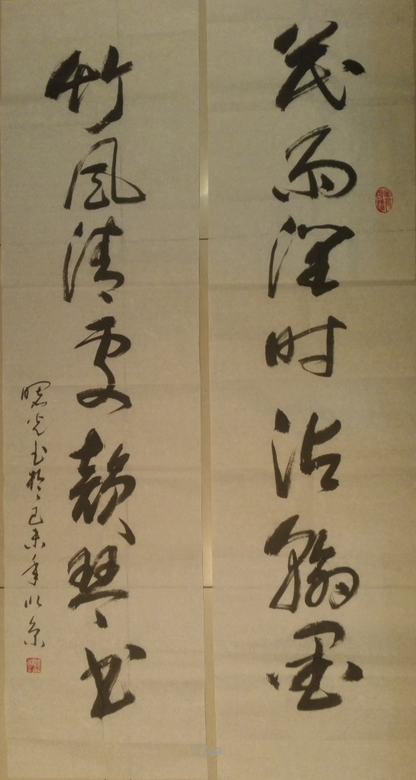 花雨润时沾翰墨
竹风清处静琴书
曙光书於己未年北京